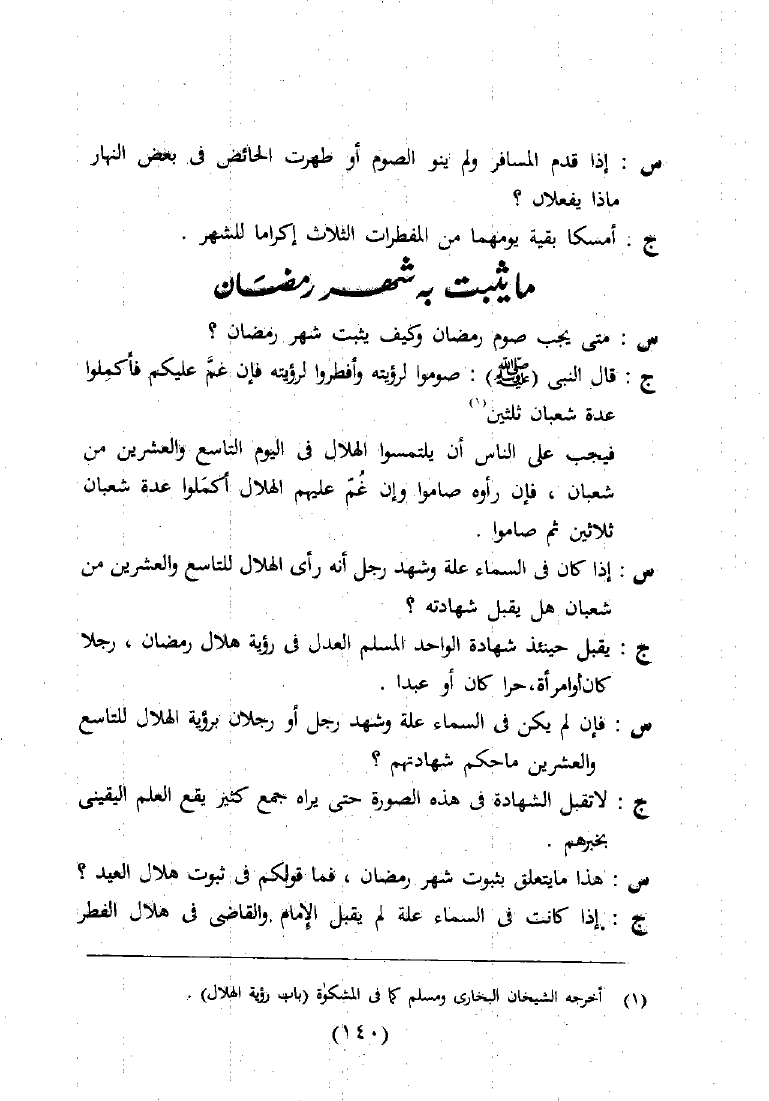 س : إذا قدم المسافر ولم ينو الصوم أو طهرت الحائض فى بعض النهار
ماذا يفعلان ؟
ج : أمسكا بقية يومهما من المفطرات الثلاث إكراما للشهر .
ما يثبت به شهر رمضان
س : متى يجب صوم رمضان وكيف يثبت شهر رمضان ؟
ج : قال النبى (ﷺ) : صوموا لرؤيته وأفطروا لرؤيته فإن غمَّ عليكم فأكمِلوا
عدة شعبان ثلثين(١)
فيجب على الناس أن يلتمسوا الهلال فى اليوم التاسع والعشرين من
شعبان ، فإن رأوه صاموا وإن غُمّ عليهم الهلال أكمَلوا عدة شعبان
ثلاثين ثم صاموا .
س : إذا كان فى السماء علة وشهد رجل أنه رأى الهلال للتاسع والعشرين من
شعبان هل يقبل شهادته ؟
ج : يقبل حينئذ شهادة الواحد المسلم العدل فى رؤية هلال رمضان ، رجلا
كان أوامرأة، حرا كان أو عبدا .
س : فإن لم يكن فى السماء علة وشهد رجل أو رجلان برؤية الهلال للتاسع
والعشرين ماحكم شهادتهم ؟
ج : لاتقبل الشهادة فى هذه الصورة حتى يراه جمع كثير يقع العلم اليقينى
بخبرهم .
س : هذا مايتعلق بثبوت شهر رمضان ، فما قولكم فى ثبوت هلال العيد ؟
ج : إذا كانت فى السماء علة لم يقبل الإمام والقاضى فى هلال الفطر
(١) أخرجه الشيخان البخارى ومسلم كما فى المشكوٰة (باب رؤية الهلال) .
(١٤٠)